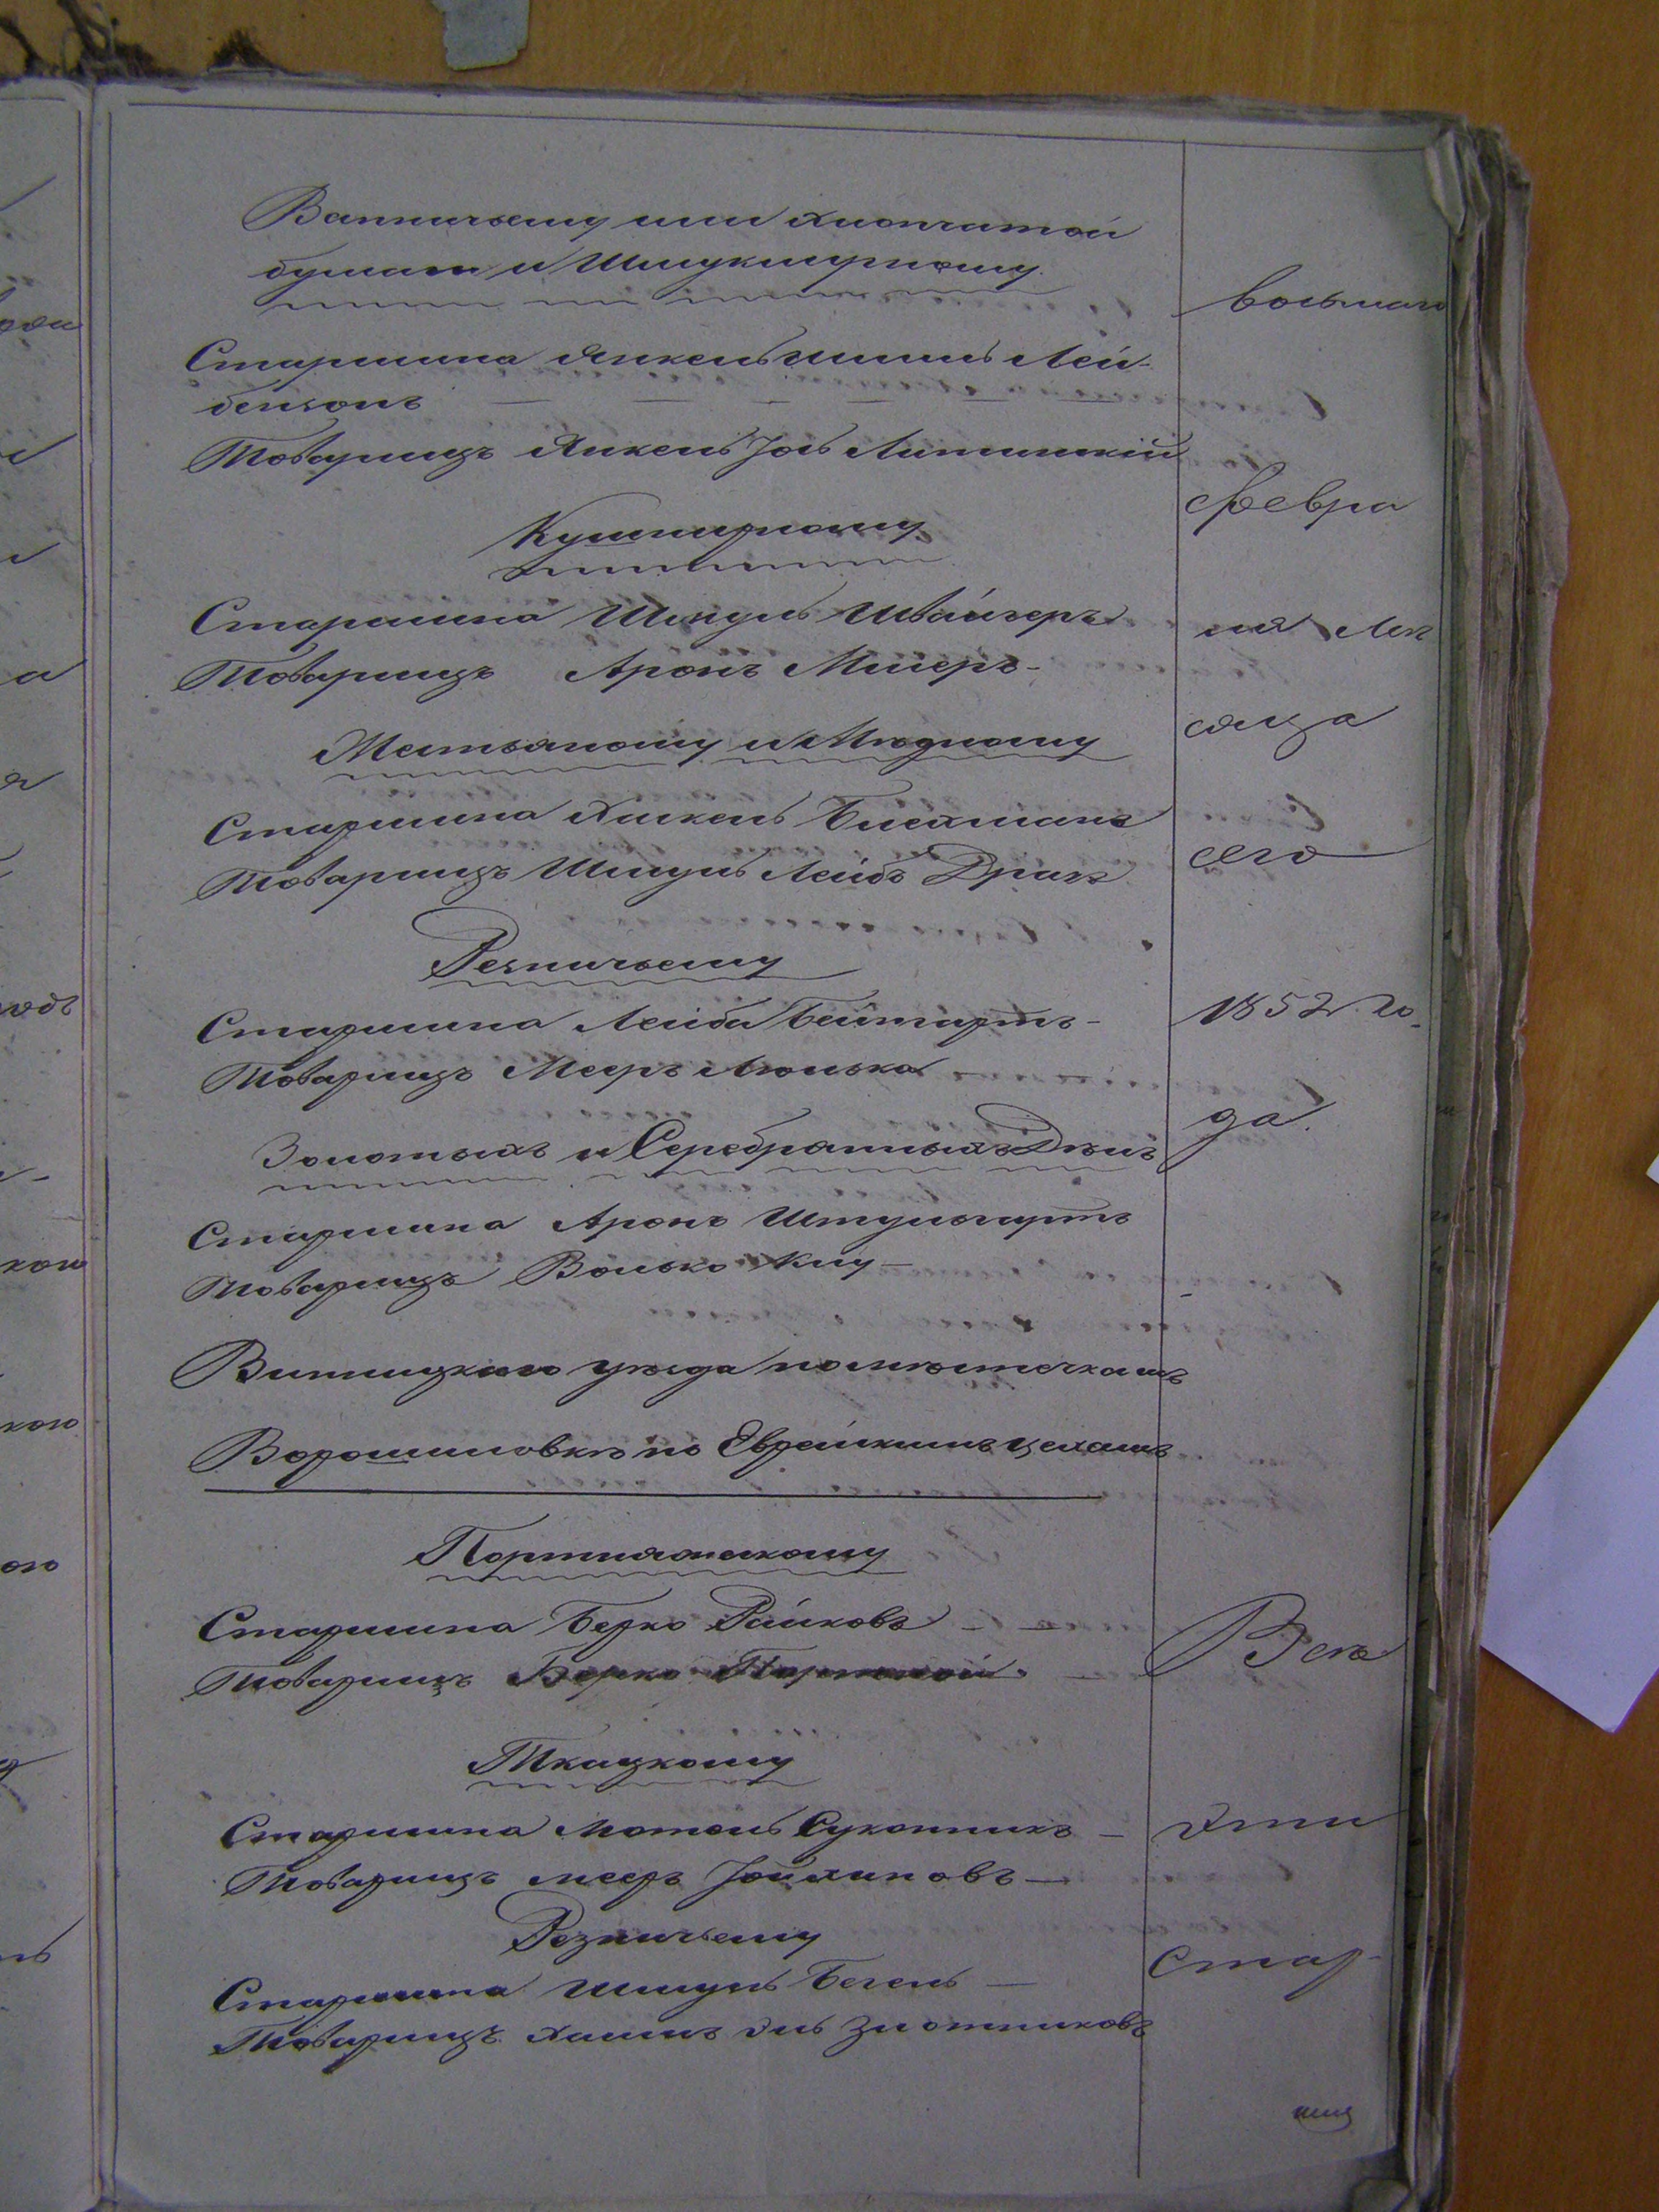 Ватничьему или хлопчатой
бумаги и Шмуклярному.
Старшина Янкель Шлиома Лей-
бензонъ
Товарищъ Янкель Іось Липницкій
Кушнирному
Старшина Шмуль Швайгеръ
Товарищъ Аронъ Милеръ-
Жестяному и Мѣдному
Старшина Хаскель Блехманъ
Товарищъ Шмуль Лейбъ Драхъ
Резничьему
Старшина Лейба Бейтартъ-
Товарищъ Мееръ Люлька
Золотыхъ и Серебрянныхъ Дѣлъ
Старшина Аронъ Штульгартъ
Товарищъ Волько
Винницкаго уѣзда по мѣстечкамъ
Ворошиловкѣ по Еврейскимъ цехамъ
Портняжескому
Старшина Берко Райховъ
Товарищъ Берко Портной.
Ткацкому
Старшина Мотель Суконникъ
Товарищъ Мееръ
Резничьему
Старшина Шмуль Бегель
Товарищъ Хаимъ Эль Злотниковъ
восьмаго
Февра
ля мѣ
сяца
сего
1852 го-
да.
Всѣ
эти
стар-
шины